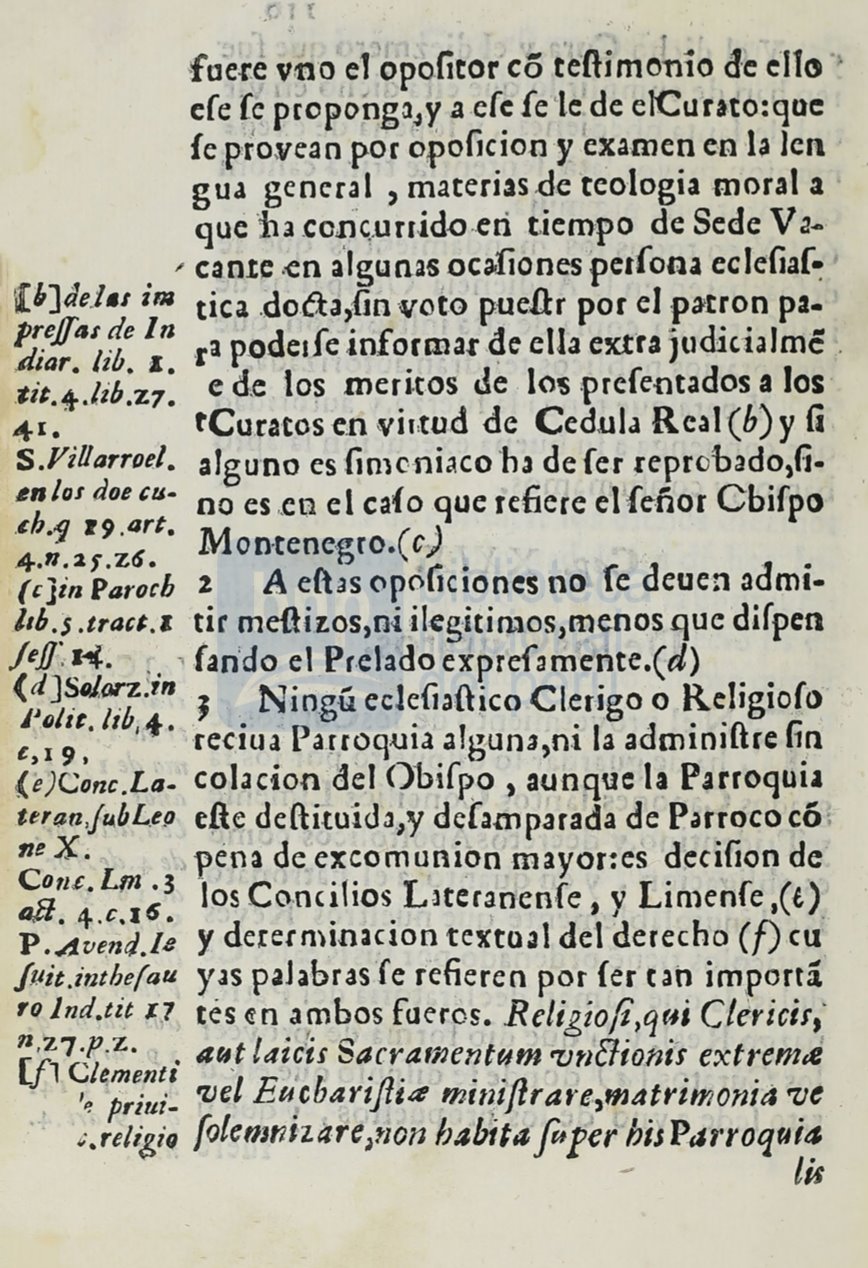 fuere vno el opoſitor cõ teſtimonio de ello
eſe ſe proponga,y a eſe ſe le de elCurato:que
ſe provean por opoſicion y examen en la len
gua general , materias de teologia moral a
que ha concurrido en tiempo de Sede Va-
cante en algunas ocaſiones perſona ecleſiaſ-
tica docta,ſin voto pueſtr por el patron pa-
ra poderſe informar de ella extra judicialmẽ
e de los meritos de los preſentados a los
tCuratos en virtud de Cedula Real (b) y ſi
alguno es ſimoniaco ha de ſer reprobado,ſi-
no es en el caſo que refiere el ſeñor Obiſpo
Montenegro.(c)
2 A eſtas opoſiciones no ſe deuen admi-
tir meſtizos,ni ilegitimos,menos que diſpen
ſando el Prelado expreſamente.(d)
3 Ningũ ecleſiaſtico Clerigo o Religioſo
reciua Parroquia alguna,ni la adminiſtre ſin
colacion del Obiſpo , aunque la Parroquia
eſte deſtituida,y deſamparada de Parroco cõ
pena de excomunion mayor:es deciſion de
los Concilios Lateranenſe , y Limenſe ,(e)
y determinacion textual del derecho (f) cu
yas palabras ſe refieren por ſer tan importã
tes en ambos fueros. Religioſi,qui Clericis,
aut laicis Sacramentum vnctionis extremæ
vel Euchariſtiæ miniſtrare,matrimonia ve
ſolemnizare,non habita ſuper his Parroquia
lis
[b] de las im
preſſas de In
diar. lib. 1.
tit.4.lib.27.
41.
S.Villarroel.
en los doe cu-
ch.q 19.art.
4.n.25.26.
(c]in Paroch
lib.5.tract.1
ſeſſ.14.
(d]Solorz.in
Polit. lib,4.
c,19,
(e)Conc.La-
teran.ſubLeo
ne X.
Conc.Lm .3
act. 4.c.16.
P.Avend.Ie
ſuit.intheſau
ro Ind.tit 17
n.27.p.2.
[f] Clementi
priui-
.religio